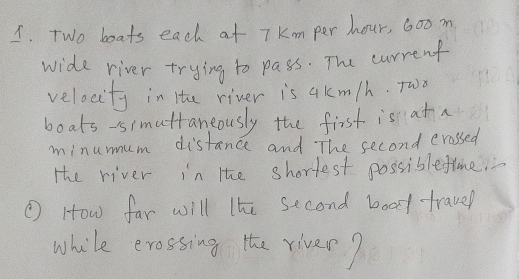 1. Two boats each at 7 Km per hour, 600 m
wide river trying to pass. The current
velocity in the river is 4 km/h. Two
boats simultaneously the first is at a
minumum distance and The second crossed
the river in the shortest possible time.
① How far will the second boat travel
while crossing the river ?